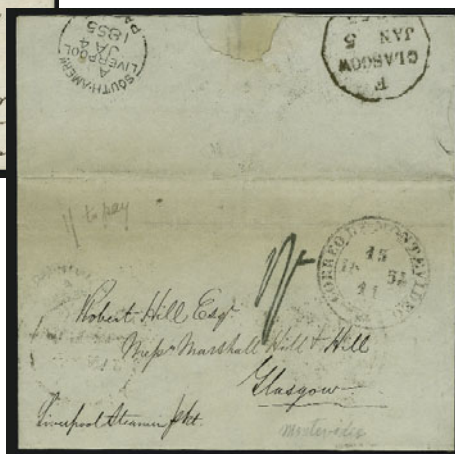 SOUTH-AMERN
LIVERPOOL
A
JA 4
1855
F
GLASGOW
JAN 5
1/ to pay
CORREO DE MONTEVIDEO
15
11
Robert Hill Esqr
Messrs Marshall Hill & Hill
Glasgow
Liverpool Steamer Pkt.
Montevideo